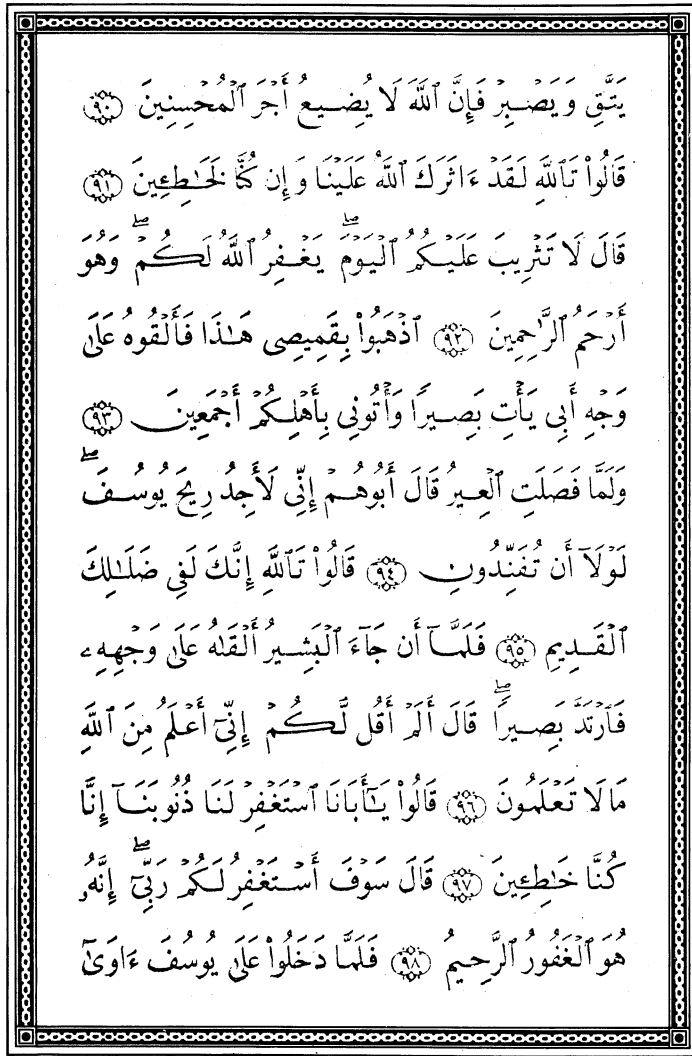 يَتَّقِ وَيَصۡبِرۡ فَإِنَّ ٱللَّهَ لَا يُضِيعُ أَجۡرَ ٱلۡمُحۡسِنِينَ ۝٩٠
قَالُواْ تَٱللَّهِ لَقَدۡ ءَاثَرَكَ ٱللَّهُ عَلَيۡنَا وَإِن كُنَّا لَخَٰطِـِٔينَ ۝٩١
قَالَ لَا تَثۡرِيبَ عَلَيۡكُمُ ٱلۡيَوۡمَۖ يَغۡفِرُ ٱللَّهُ لَكُمۡۖ وَهُوَ
أَرۡحَمُ ٱلرَّٰحِمِينَ ۝٩٢ ٱذۡهَبُواْ بِقَمِيصِي هَٰذَا فَأَلۡقُوهُ عَلَىٰ
وَجۡهِ أَبِي يَأۡتِ بَصِيرٗا وَأۡتُونِي بِأَهۡلِكُمۡ أَجۡمَعِينَ ۝٩٣
وَلَمَّا فَصَلَتِ ٱلۡعِيرُ قَالَ أَبُوهُمۡ إِنِّي لَأَجِدُ رِيحَ يُوسُفَۖ
لَوۡلَآ أَن تُفَنِّدُونِ ۝٩٤ قَالُواْ تَٱللَّهِ إِنَّكَ لَفِي ضَلَٰلِكَ
ٱلۡقَدِيمِ ۝٩٥ فَلَمَّآ أَن جَآءَ ٱلۡبَشِيرُ أَلۡقَىٰهُ عَلَىٰ وَجۡهِهِۦ
فَٱرۡتَدَّ بَصِيرٗاۖ قَالَ أَلَمۡ أَقُل لَّكُمۡ إِنِّيٓ أَعۡلَمُ مِنَ ٱللَّهِ
مَا لَا تَعۡلَمُونَ ۝٩٦ قَالُواْ يَٰٓأَبَانَا ٱسۡتَغۡفِرۡ لَنَا ذُنُوبَنَآ إِنَّا
كُنَّا خَٰطِـِٔينَ ۝٩٧ قَالَ سَوۡفَ أَسۡتَغۡفِرُ لَكُمۡ رَبِّيٓۖ إِنَّهُۥ
هُوَ ٱلۡغَفُورُ ٱلرَّحِيمُ ۝٩٨ فَلَمَّا دَخَلُواْ عَلَىٰ يُوسُفَ ءَاوَىٰٓ